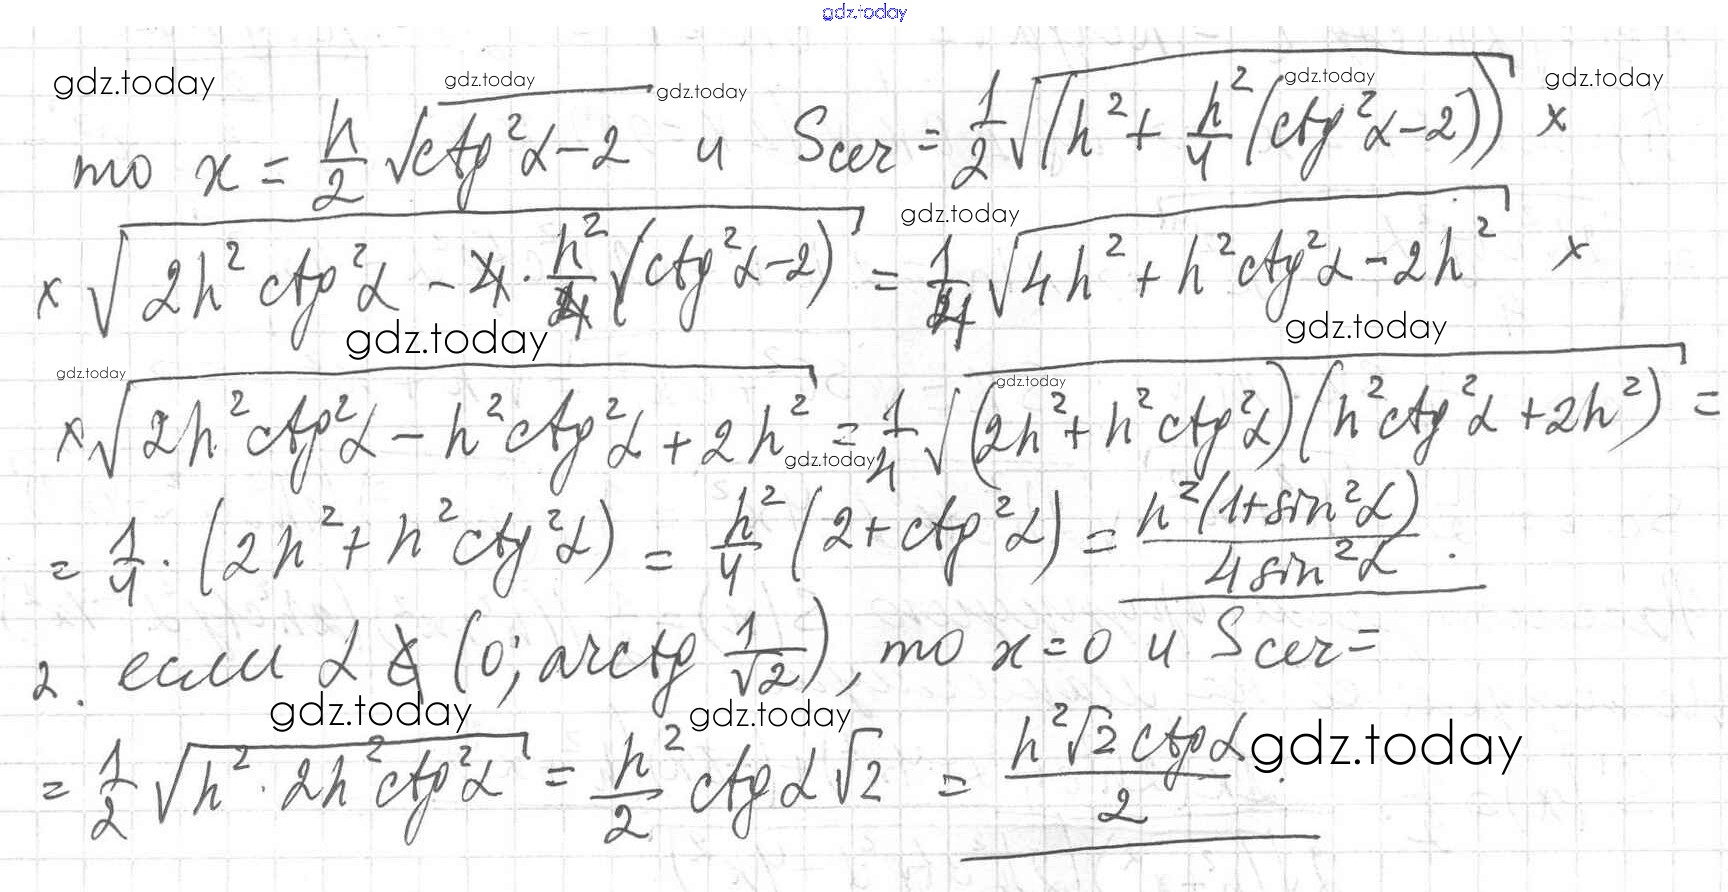 gdz.today
gdz.today gdz.today gdz.today gdz.today gdz.today
то x = h/2 √(ctg²α − 2) и Sсеч = 1/2 √((h² + h²/4 (ctg²α − 2))) ×
gdz.today
× √(2h² ctg²α − 4 · h²/4 (ctg²α − 2)) = 1/4 √(4h² + h² ctg²α − 2h²) ×
gdz.today gdz.today
gdz.today gdz.today
× √(2h² ctg²α − h² ctg²α + 2h²) = 1/4 √((2h² + h² ctg²α)(h² ctg²α + 2h²)) =
gdz.today
= 1/4 · (2h² + h² ctg²α) = h²/4 (2 + ctg²α) = h²(1 + sin²α)/4 sin²α .
2. если α ∉ (0; arctg 1/√2), то x = 0 и Sсеч =
gdz.today gdz.today gdz.today
= 1/2 √(h² · 2h² ctg²α) = h²/2 ctg α √2 = h²√2 ctg α/2 .